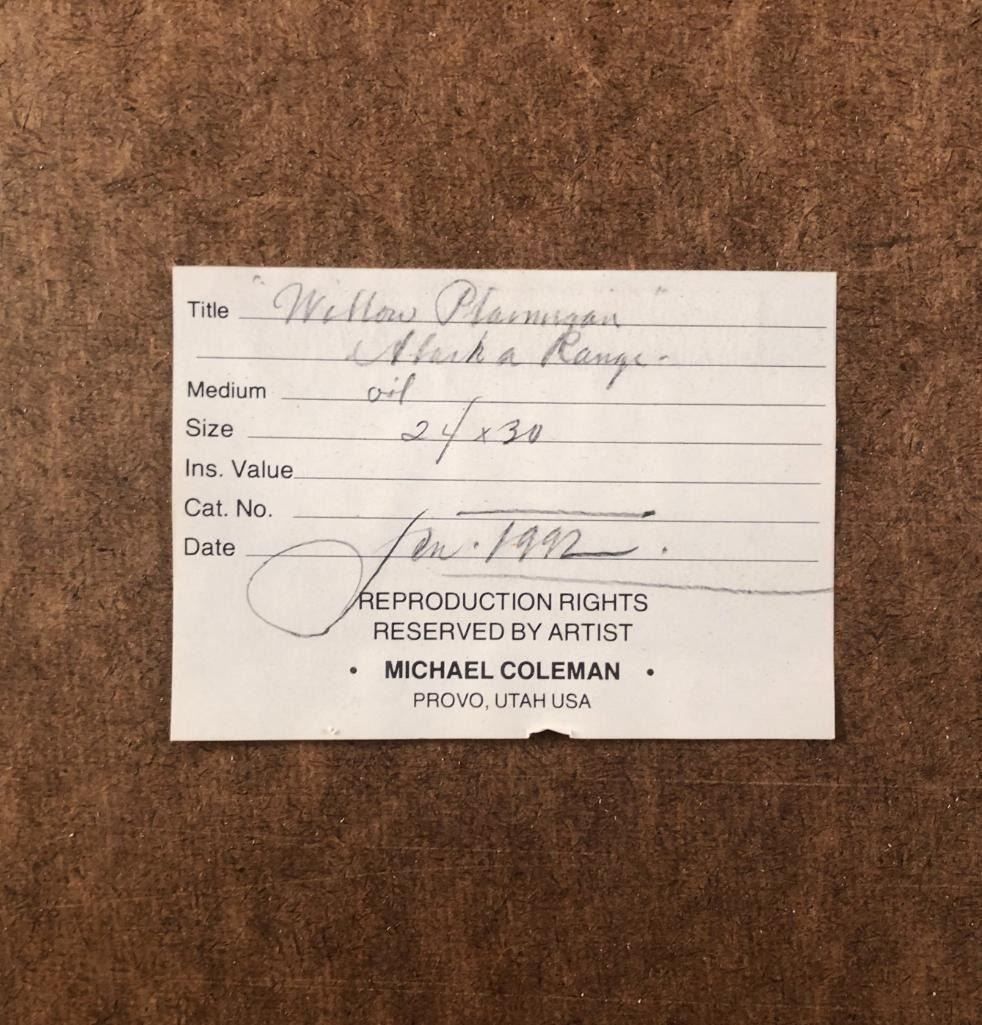 Title "Willow Ptarmigan"
Alaska Range.
Medium oil
Size 24 x 30
Ins. Value
Cat. No.
Date Jan. 1992.
REPRODUCTION RIGHTS
RESERVED BY ARTIST
• MICHAEL COLEMAN •
PROVO, UTAH USA